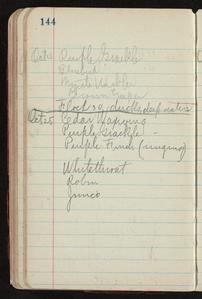 144
Oct Purple Grackle
Bluebird
Myrtle Warbler
Brown Creeper
Flock so. ducks, deep waters
Oct 25 Cedar Waxwing
Purple Grackle -
Purple Finch (singing)
Whitethroat
Robin
Junco